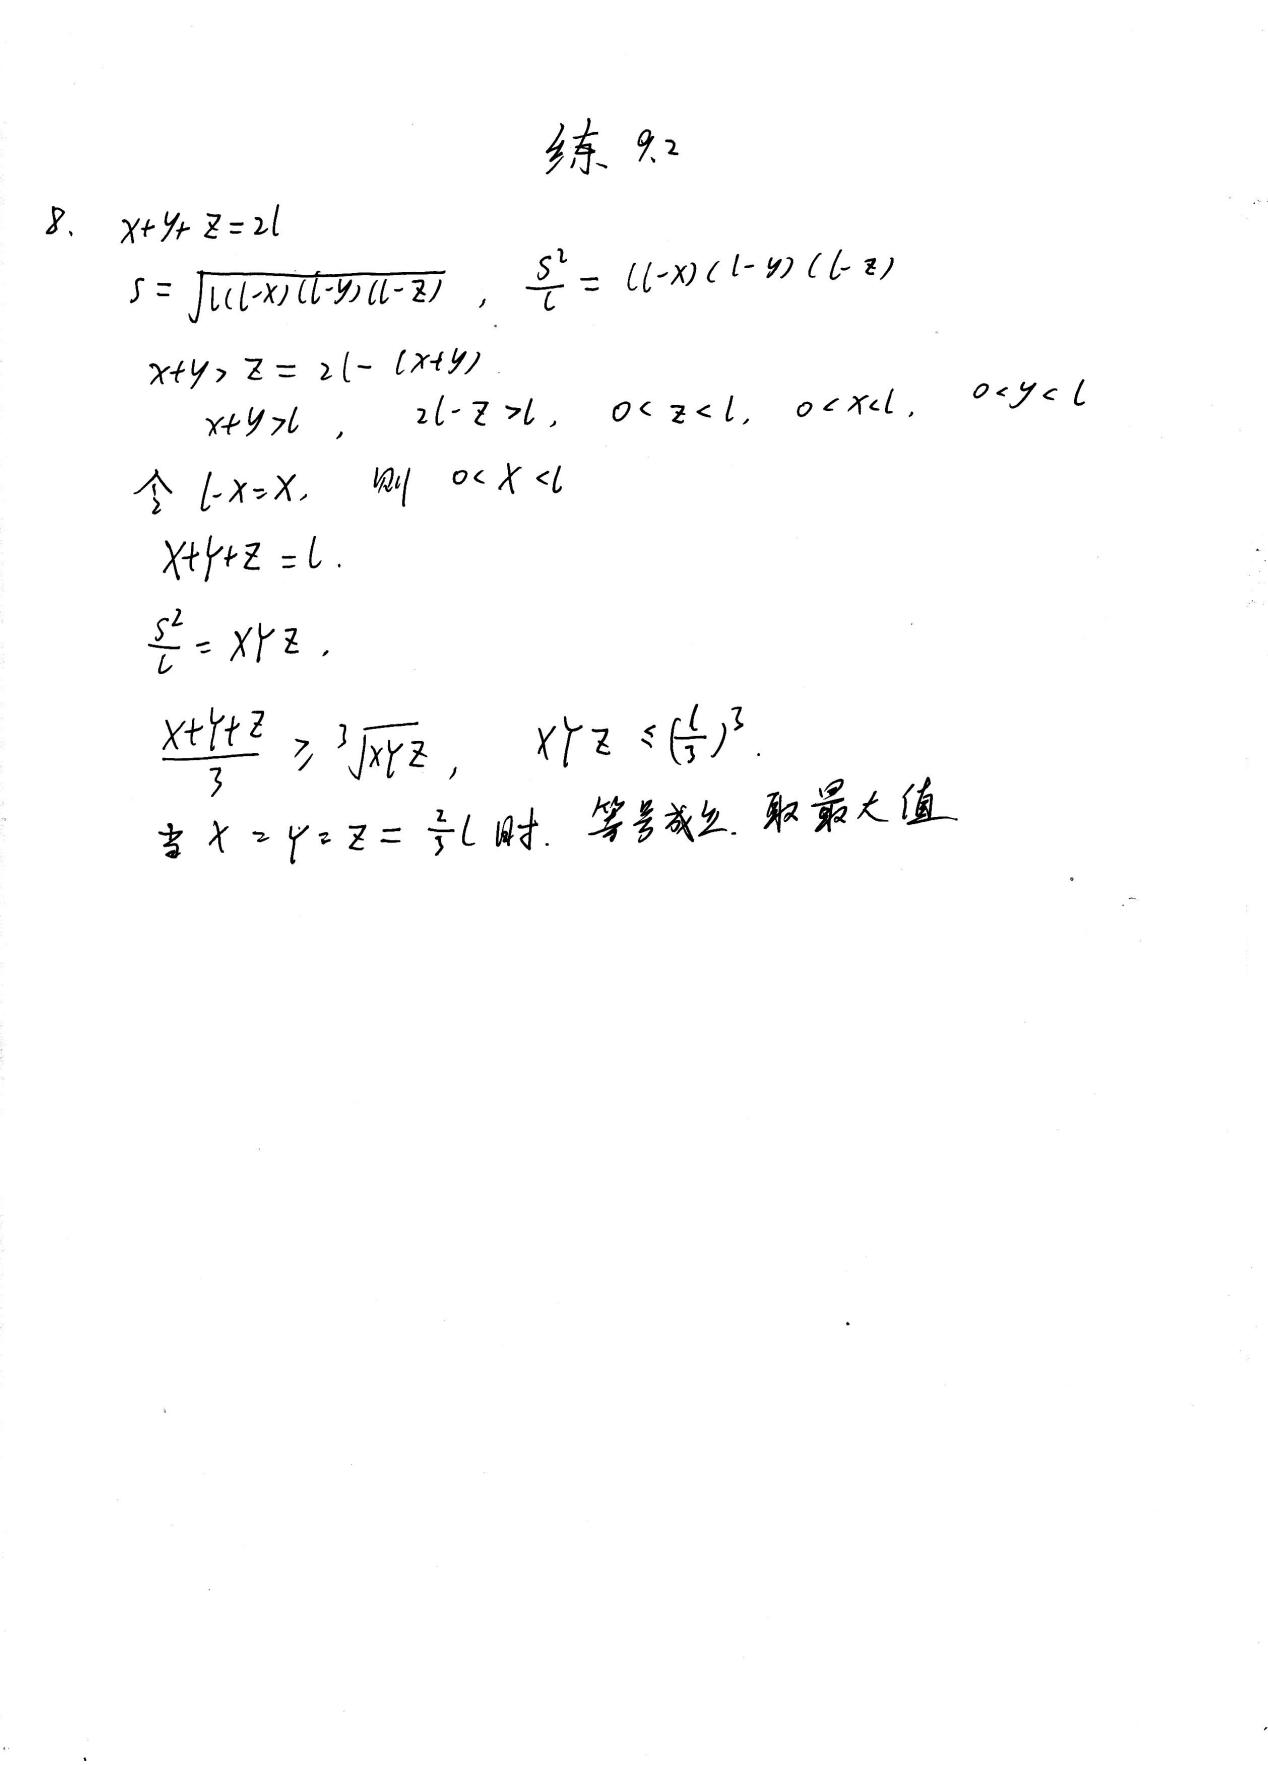 练 9.2
8. x+y+z=2l
S=√(l(l-x)(l-y)(l-z)), S²/l = (l-x)(l-y)(l-z)
x+y>z=2l-(x+y)
x+y>l, 2l-z>l, 0<z<l, 0<x<l, 0<y<l
令 l-x=X, 则 0<X<l
X+Y+Z=l.
S²/l = XYZ,
(X+Y+Z)/3 ≥ ³√(XYZ), XYZ ≤ (l/3)³.
当 x=y=z=2/3 l 时. 等号成立. 取最大值